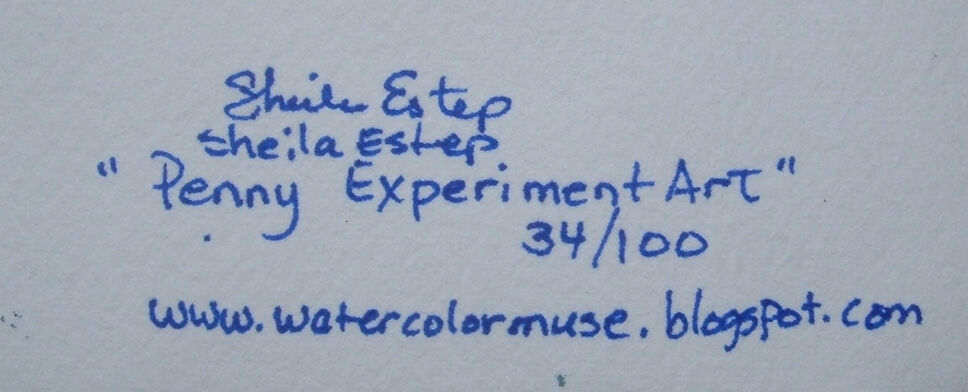 Sheila Estep
sheila Estep
"Penny Experiment Art"
34/100
www.watercolormuse.blogspot.com